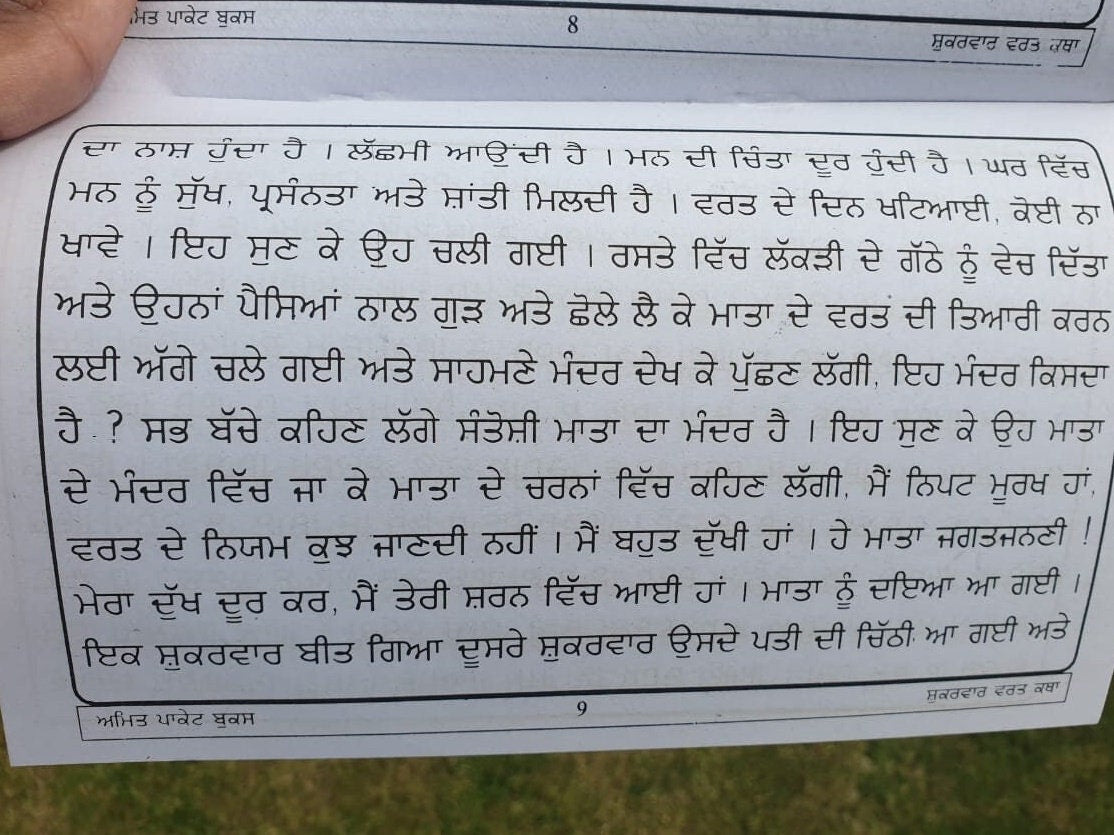 ਅਮਿਤ ਪਾਕੇਟ ਬੁਕਸ
8
ਸ਼ੁਕਰਵਾਰ ਵਰਤ ਕਥਾ
ਦਾ ਨਾਸ਼ ਹੁੰਦਾ ਹੈ । ਲੱਛਮੀ ਆਉਂਦੀ ਹੈ । ਮਨ ਦੀ ਚਿੰਤਾ ਦੂਰ ਹੁੰਦੀ ਹੈ । ਘਰ ਵਿੱਚ
ਮਨ ਨੂੰ ਸੁੱਖ, ਪ੍ਰਸੰਨਤਾ ਅਤੇ ਸ਼ਾਂਤੀ ਮਿਲਦੀ ਹੈ । ਵਰਤ ਦੇ ਦਿਨ ਖਟਿਆਈ, ਕੋਈ ਨਾ
ਖਾਵੇ । ਇਹ ਸੁਣ ਕੇ ਉਹ ਚਲੀ ਗਈ । ਰਸਤੇ ਵਿੱਚ ਲੱਕੜੀ ਦੇ ਗੱਠੇ ਨੂੰ ਵੇਚ ਦਿੱਤਾ
ਅਤੇ ਉਹਨਾਂ ਪੈਸਿਆਂ ਨਾਲ ਗੁੜ ਅਤੇ ਛੋਲੇ ਲੈ ਕੇ ਮਾਤਾ ਦੇ ਵਰਤ ਦੀ ਤਿਆਰੀ ਕਰਨ
ਲਈ ਅੱਗੇ ਚਲੇ ਗਈ ਅਤੇ ਸਾਹਮਣੇ ਮੰਦਰ ਦੇਖ ਕੇ ਪੁੱਛਣ ਲੱਗੀ, ਇਹ ਮੰਦਰ ਕਿਸਦਾ
ਹੈ ? ਸਭ ਬੱਚੇ ਕਹਿਣ ਲੱਗੇ ਸੰਤੋਸ਼ੀ ਮਾਤਾ ਦਾ ਮੰਦਰ ਹੈ । ਇਹ ਸੁਣ ਕੇ ਉਹ ਮਾਤਾ
ਦੇ ਮੰਦਰ ਵਿੱਚ ਜਾ ਕੇ ਮਾਤਾ ਦੇ ਚਰਨਾਂ ਵਿੱਚ ਕਹਿਣ ਲੱਗੀ, ਮੈਂ ਨਿਪਟ ਮੂਰਖ ਹਾਂ,
ਵਰਤ ਦੇ ਨਿਯਮ ਕੁਝ ਜਾਣਦੀ ਨਹੀਂ । ਮੈਂ ਬਹੁਤ ਦੁੱਖੀ ਹਾਂ । ਹੇ ਮਾਤਾ ਜਗਤਜਨਣੀ !
ਮੇਰਾ ਦੁੱਖ ਦੂਰ ਕਰ, ਮੈਂ ਤੇਰੀ ਸ਼ਰਨ ਵਿੱਚ ਆਈ ਹਾਂ । ਮਾਤਾ ਨੂੰ ਦਇਆ ਆ ਗਈ ।
ਇਕ ਸ਼ੁਕਰਵਾਰ ਬੀਤ ਗਿਆ ਦੂਸਰੇ ਸ਼ੁਕਰਵਾਰ ਉਸਦੇ ਪਤੀ ਦੀ ਚਿੱਠੀ ਆ ਗਈ ਅਤੇ
ਅਮਿਤ ਪਾਕੇਟ ਬੁਕਸ
9
ਸ਼ੁਕਰਵਾਰ ਵਰਤ ਕਥਾ